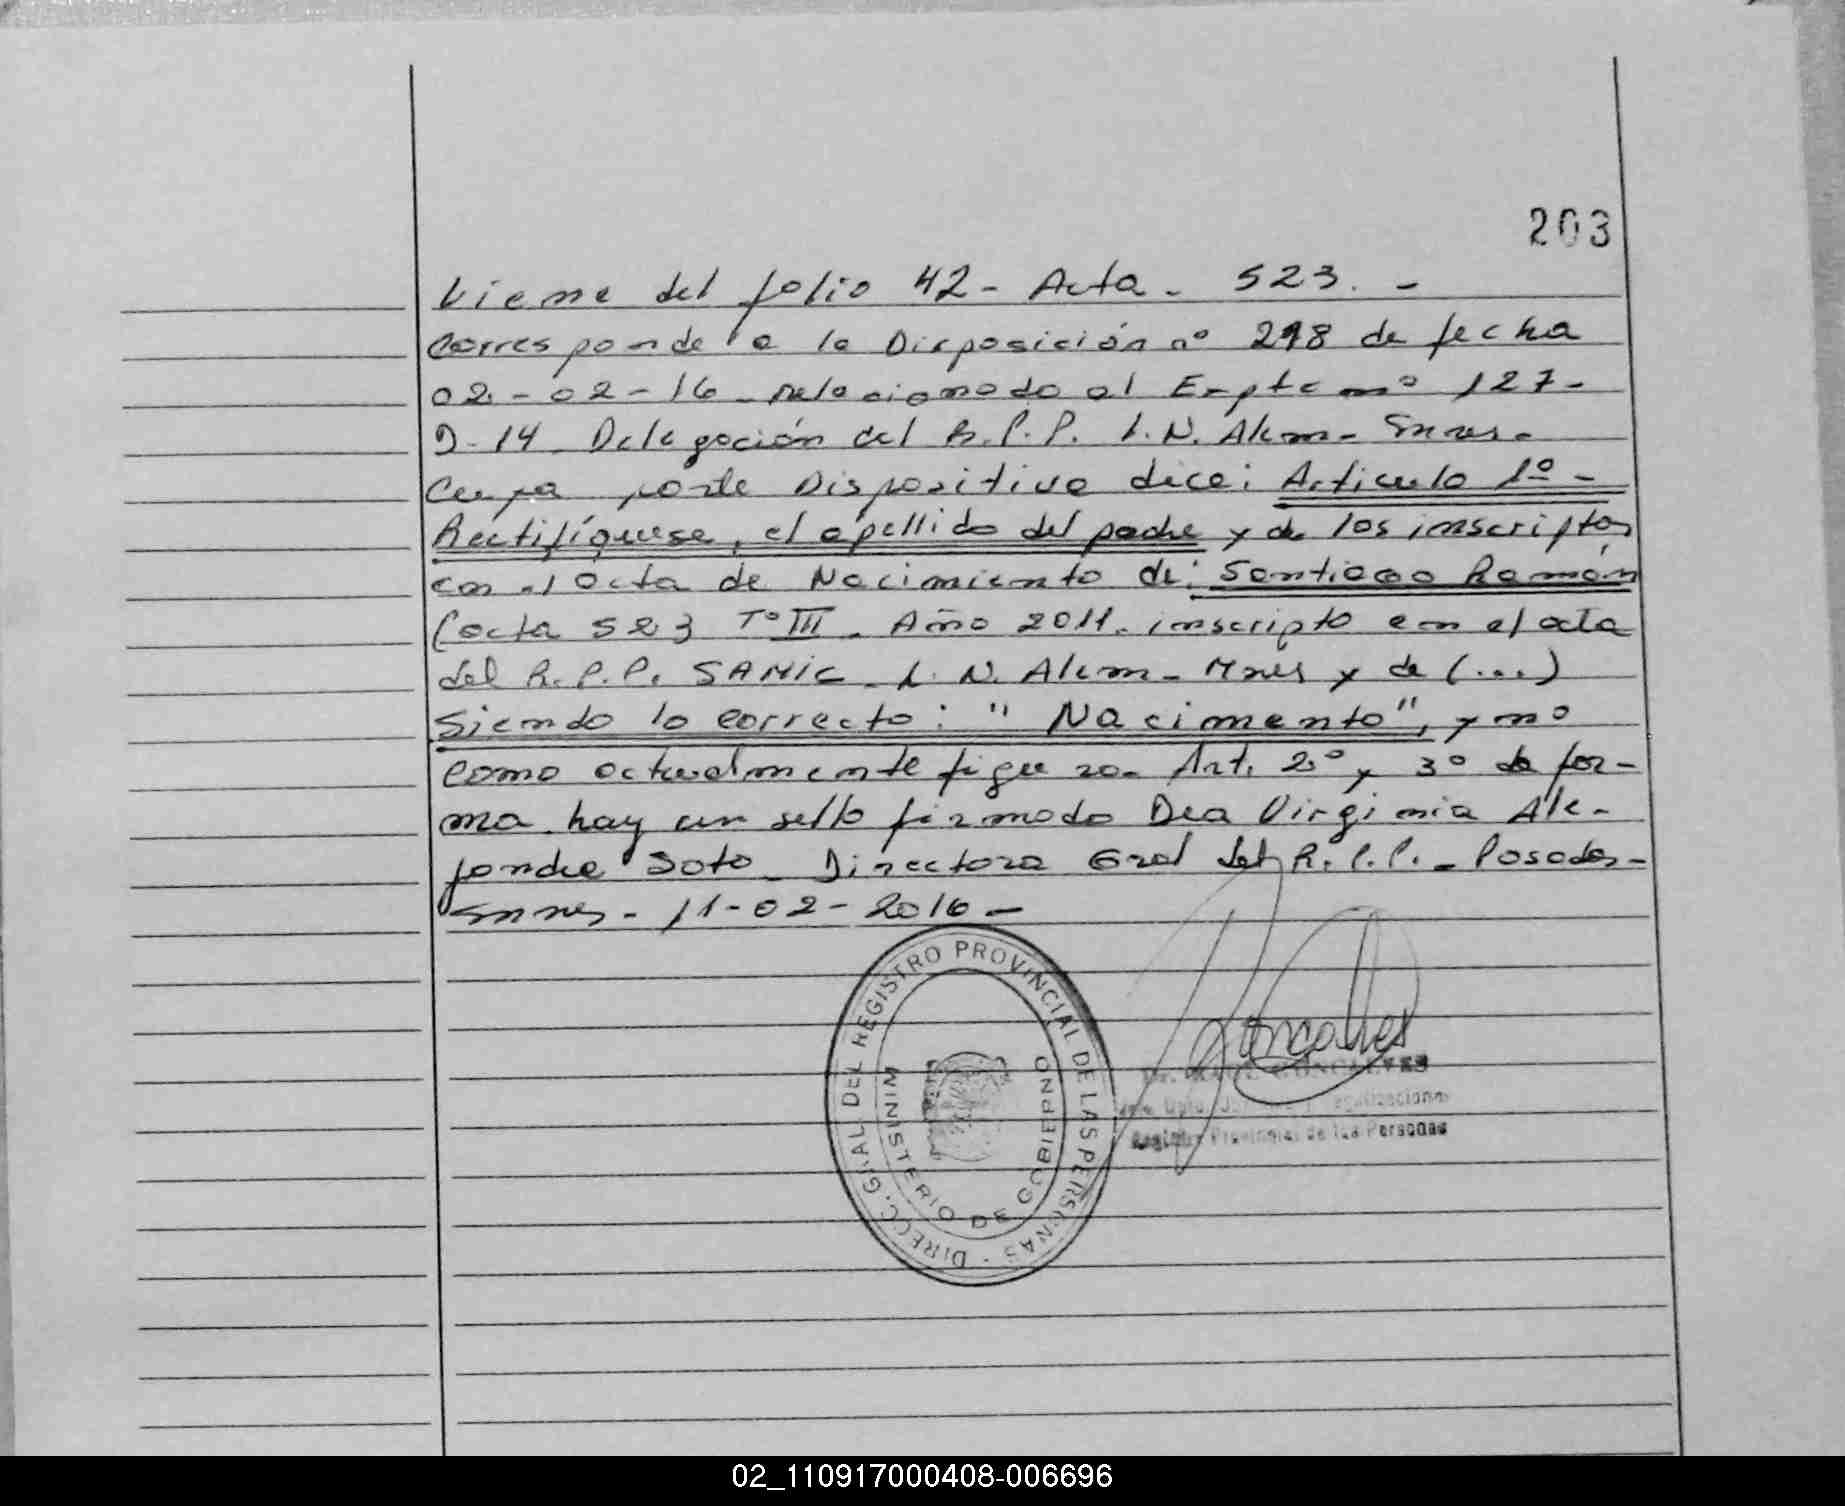 203
Viene del folio 42 - Acta - 523. -
Corresponde a la Disposición nº 298 de fecha
02 - 02 - 16 - relacionado al Expte nº 127 -
9 - 14 - Delegación del R.P.P. L.N. Alem -
Cuya parte Dispositiva dice: Articulo 1º -
Rectifíquese, el apellido del padre y de los inscriptos
en el acta de Nacimiento de: Santiago Ramón
(acta 523 Tº III - Año 2011 - inscripto en el acta
del R.P.P. SAMIC - L.N. Alem - Mnes y de (...)
Siendo lo correcto: " Nacimento", y no
como actualmente figura. Art. 2º y 3º de for-
ma. hay un sello firmado Dra Virginia Ale-
jandra Soto - Directora Gral del R.P.P. - Posadas -
11 - 02 - 2016 -
DIRECC. GRAL. DEL REGISTRO PROVINCIAL DE LAS PERSONAS
MINISTERIO DE GOBIERNO
Goncalves
GONCALVES
Registro Provincial de las Personas
02_110917000408-006696